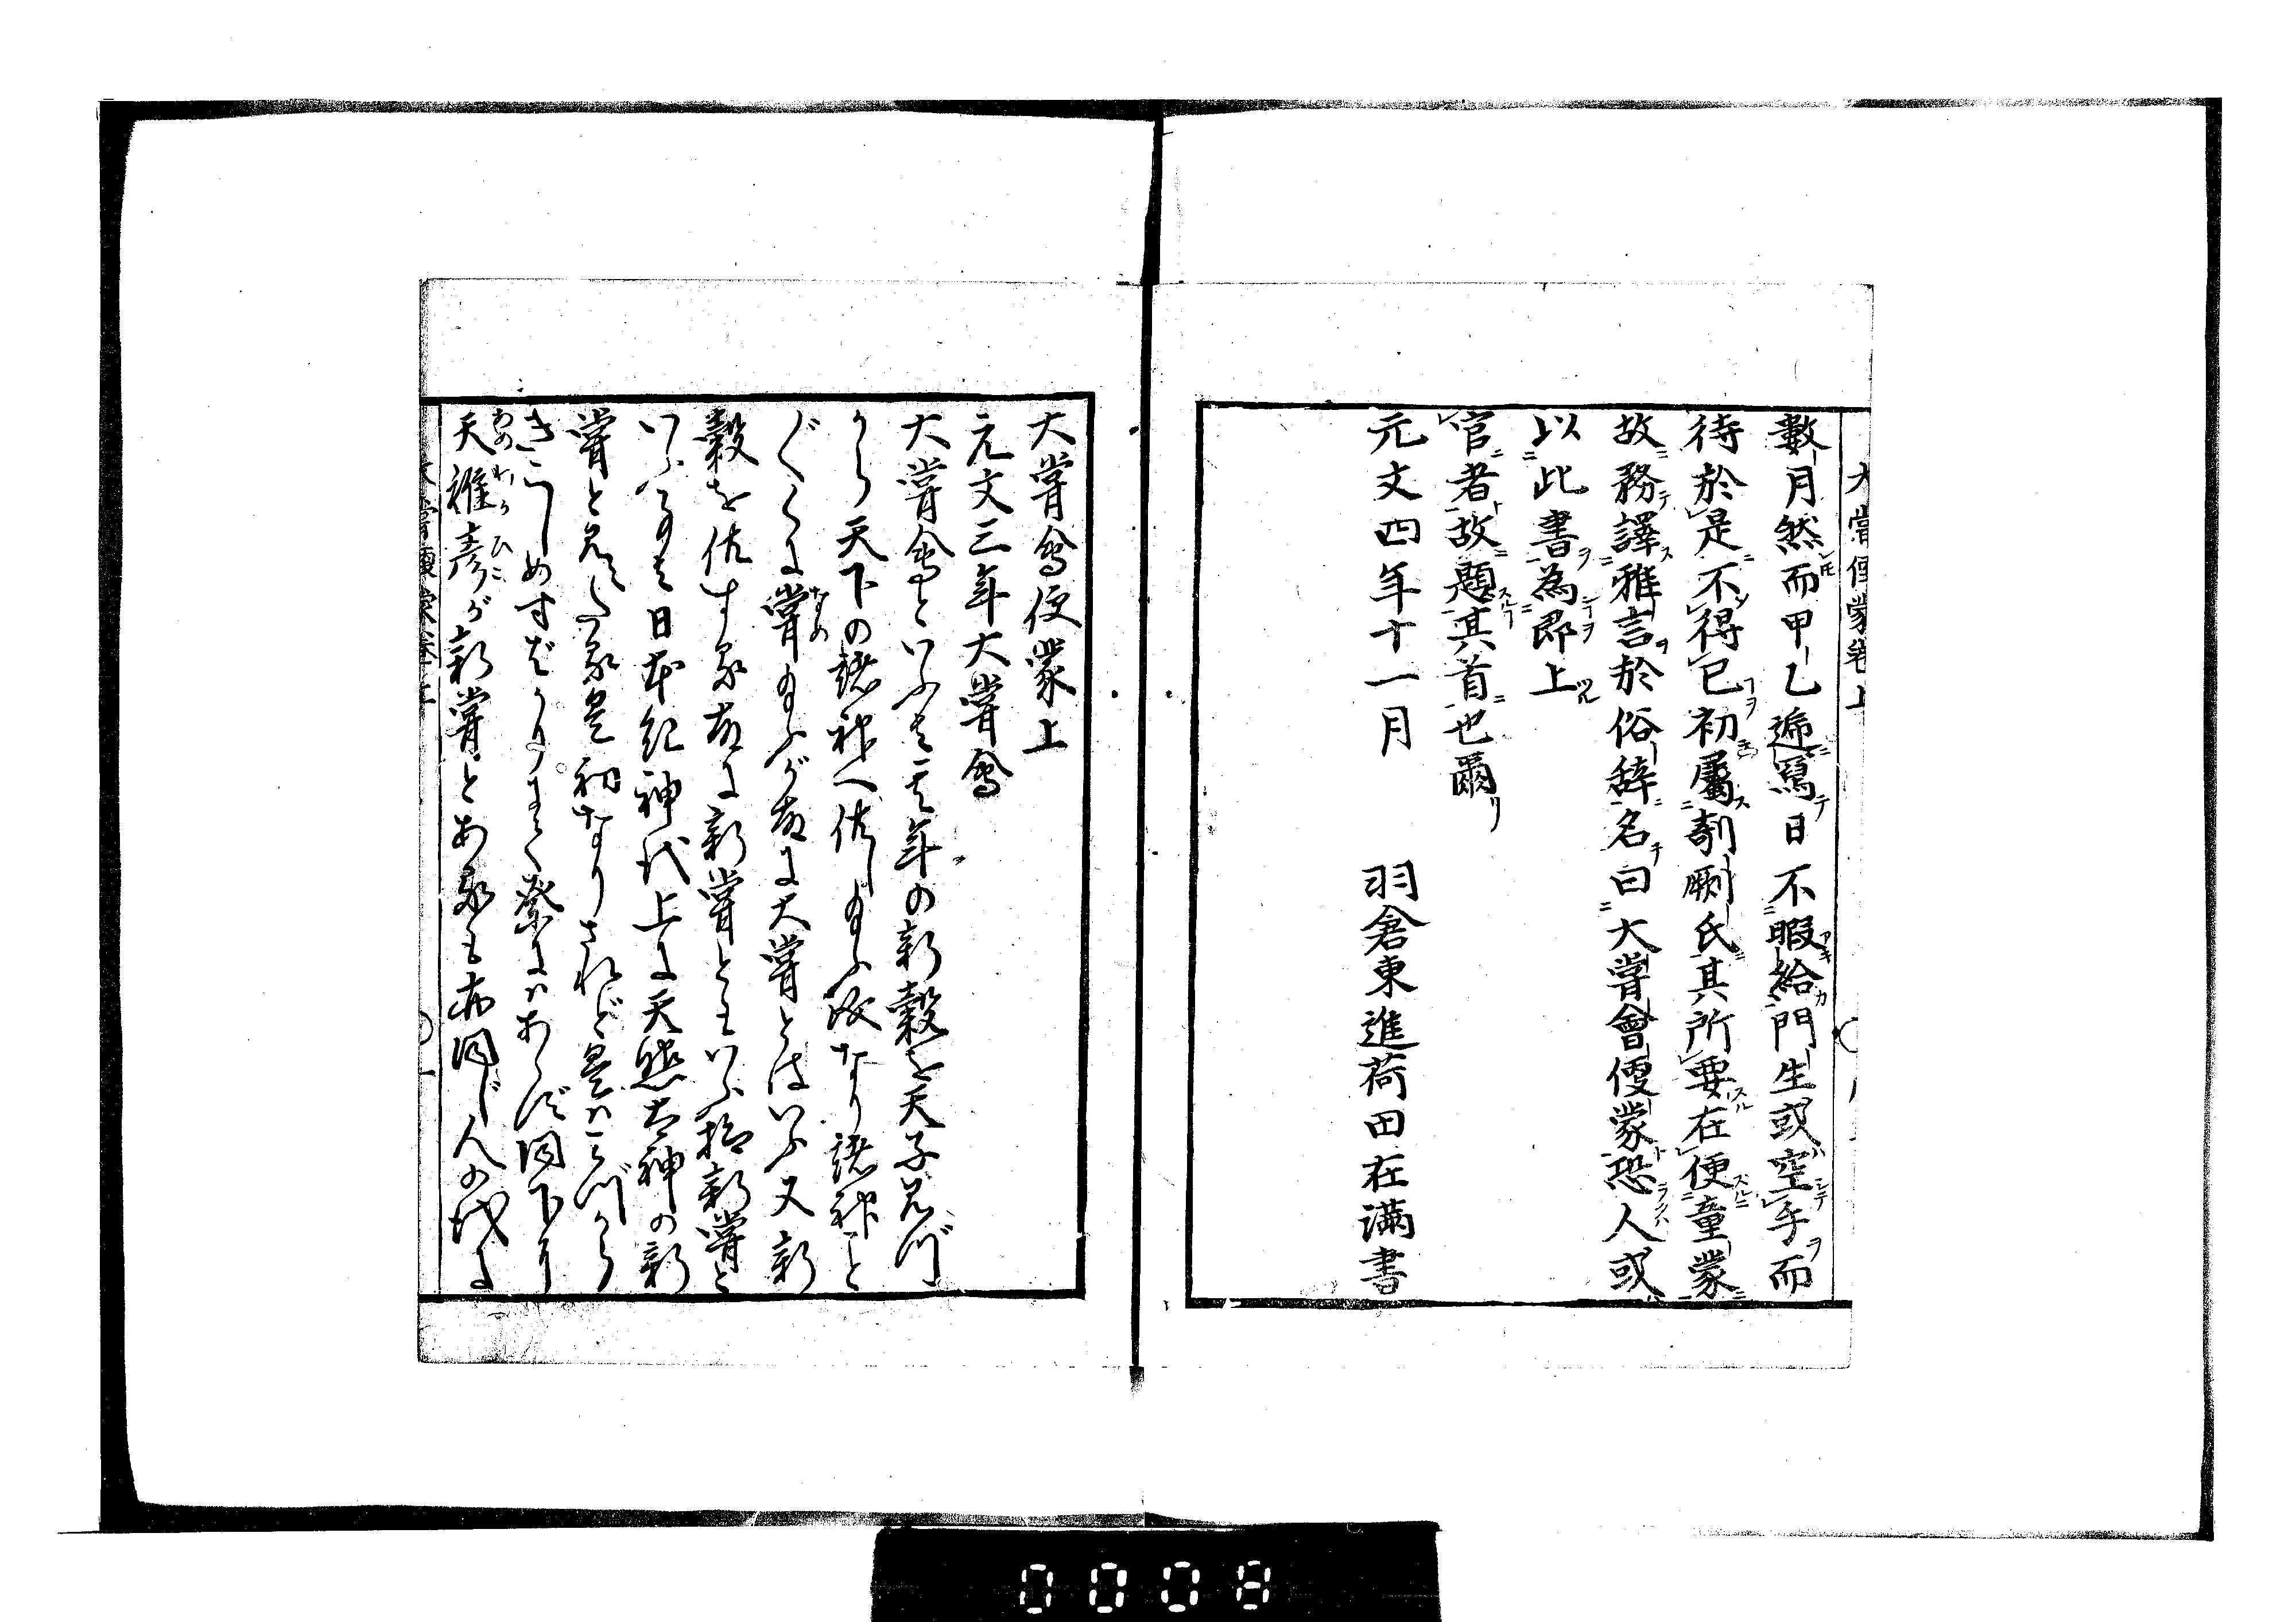 大嘗便蒙卷上
數月然而甲乙遞寫日不暇給門生或空手而
待於是不得已初屬剞劂氏其所要在便童蒙
故務譯雅言於俗辞名曰大嘗會便蒙恐人或
以此書為即上
官者故題其首也爾
元文四年十一月　　羽倉東進荷田在滿書
大嘗會便蒙上
元文三年大嘗會
大嘗會といふは其年の新穀を天子みづ
から天下の諸神へ供し給ふ政なり諸神こと
ぐくく嘗給ふが故に大嘗とはいふ又新
穀を供する故に新嘗ともいふ抑新嘗と
いふ事は日本紀神代上に天照太神の新
嘗と見えたる是初なりされど是はみづから
きこしめすばかりにて祭にはあらず同下に
天稚彦が新嘗とあるも亦同じ人の代に